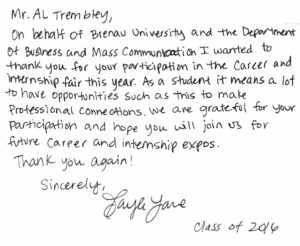 Mr. AL Trembley,
On behalf of Brenau University and the Department
of Business and Mass Communication I wanted to
thank you for your participation in the Career and
internship fair this year. As a student it means a lot
to have opportunities such as this to make
Professional Connections. We are grateful for your
Participation and hope you will join us for
future Career and internship expos.
Thank you again!
Sincerely,
Class of 2016